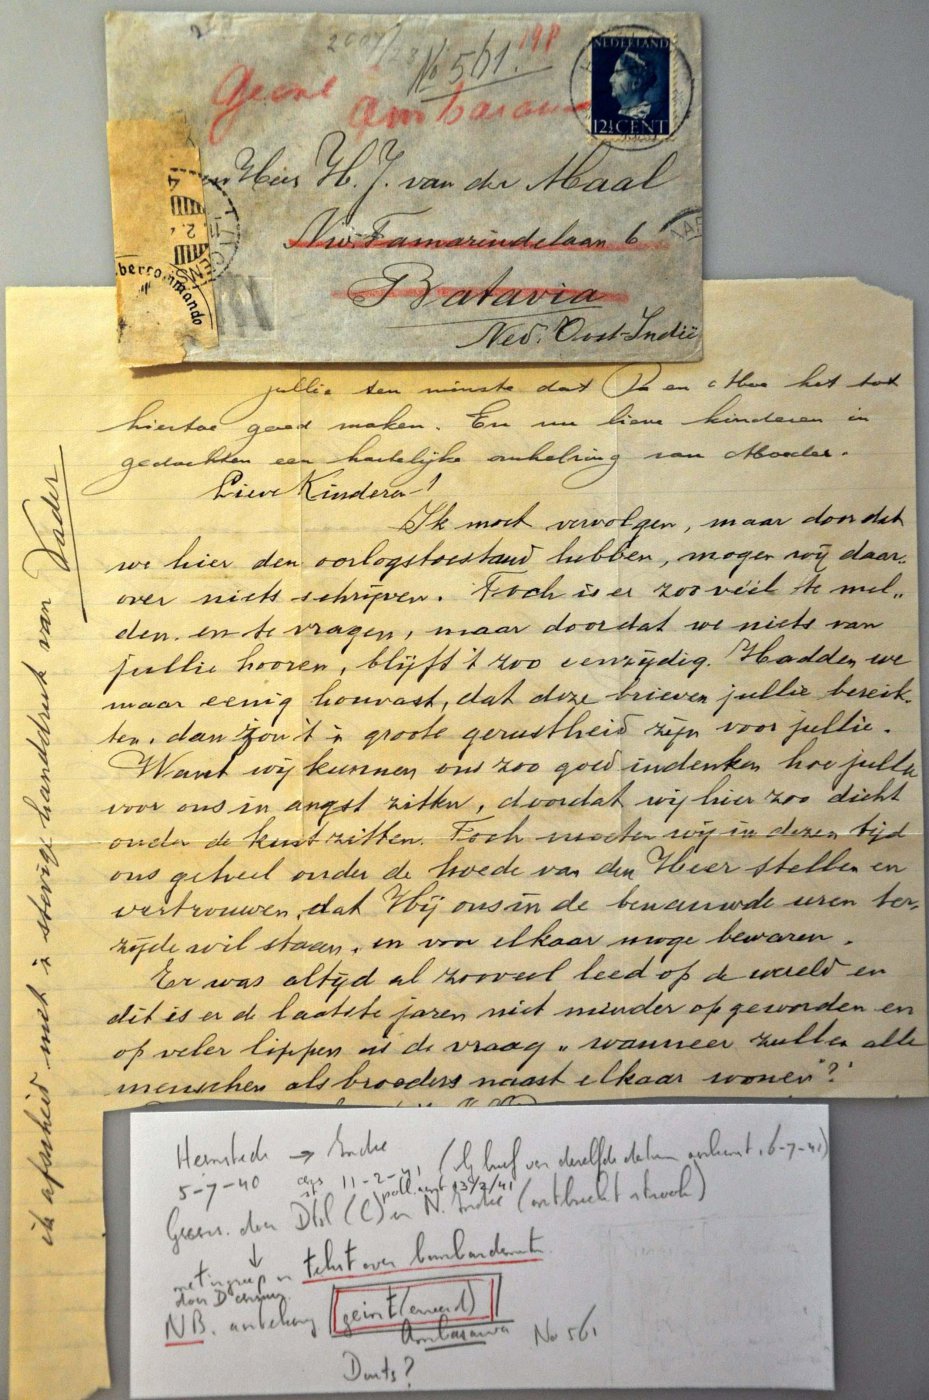 No 561.
198
NEDERLAND
12½ CENT
Geint
Ambarawa
Heer H. J. van der Maal
Nw. Tamarindelaan 6
Batavia
Ned. Oost-Indië
bercommando
jullie ten minste dat Pa en Moe het tot
hiertoe goed maken. En nu lieve kinderen in
gedachten een hartelijke omhelzing van Moeder.
Lieve Kinderen!
Ik moet vervolgen, maar doordat
we hier den oorlogstoestand hebben, mogen wij daar„
over niets schrijven. Toch is er zoo véél te mel„
den en te vragen, maar doordat we niets van
jullie hooren, blijft 't zoo eenzijdig. Hadden we
maar eenig houvast, dat deze brieven jullie bereik„
ten, dan zou 't 'n groote gerustheid zijn voor jullie.
Want wij kunnen ons zoo goed indenken hoe jullie
voor ons in angst zitten, doordat wij hier zoo dicht
onder de kust zitten. Toch moeten wij in dezen tijd
ons geheel onder de hoede van den Heer stellen en
vertrouwen, dat Hij ons in de benauwde uren ter„
zijde wil staan, en voor elkaar moge bewaren.
Er was altijd al zooveel leed op de wereld en
dit is er de laatste jaren niet minder op geworden en
op veler lippen is de vraag „wanneer zullen alle
menschen als broeders naast elkaar wonen"?
ik afscheid met 'n stevige handdruk van Vader
Heemstede → Indië
5-7-40 11-2-41 (bij brief van dezelfde datum ankomst, 6-7-41)
13/2/41
Gecens. door Dtsl (C) en N. Indië (ontbrecht strook)
↓
met ingreep in tekst over bombardementen
door D censuur
NB. aantekening geint(erneerd)
Ambarawa No 561
Duits?